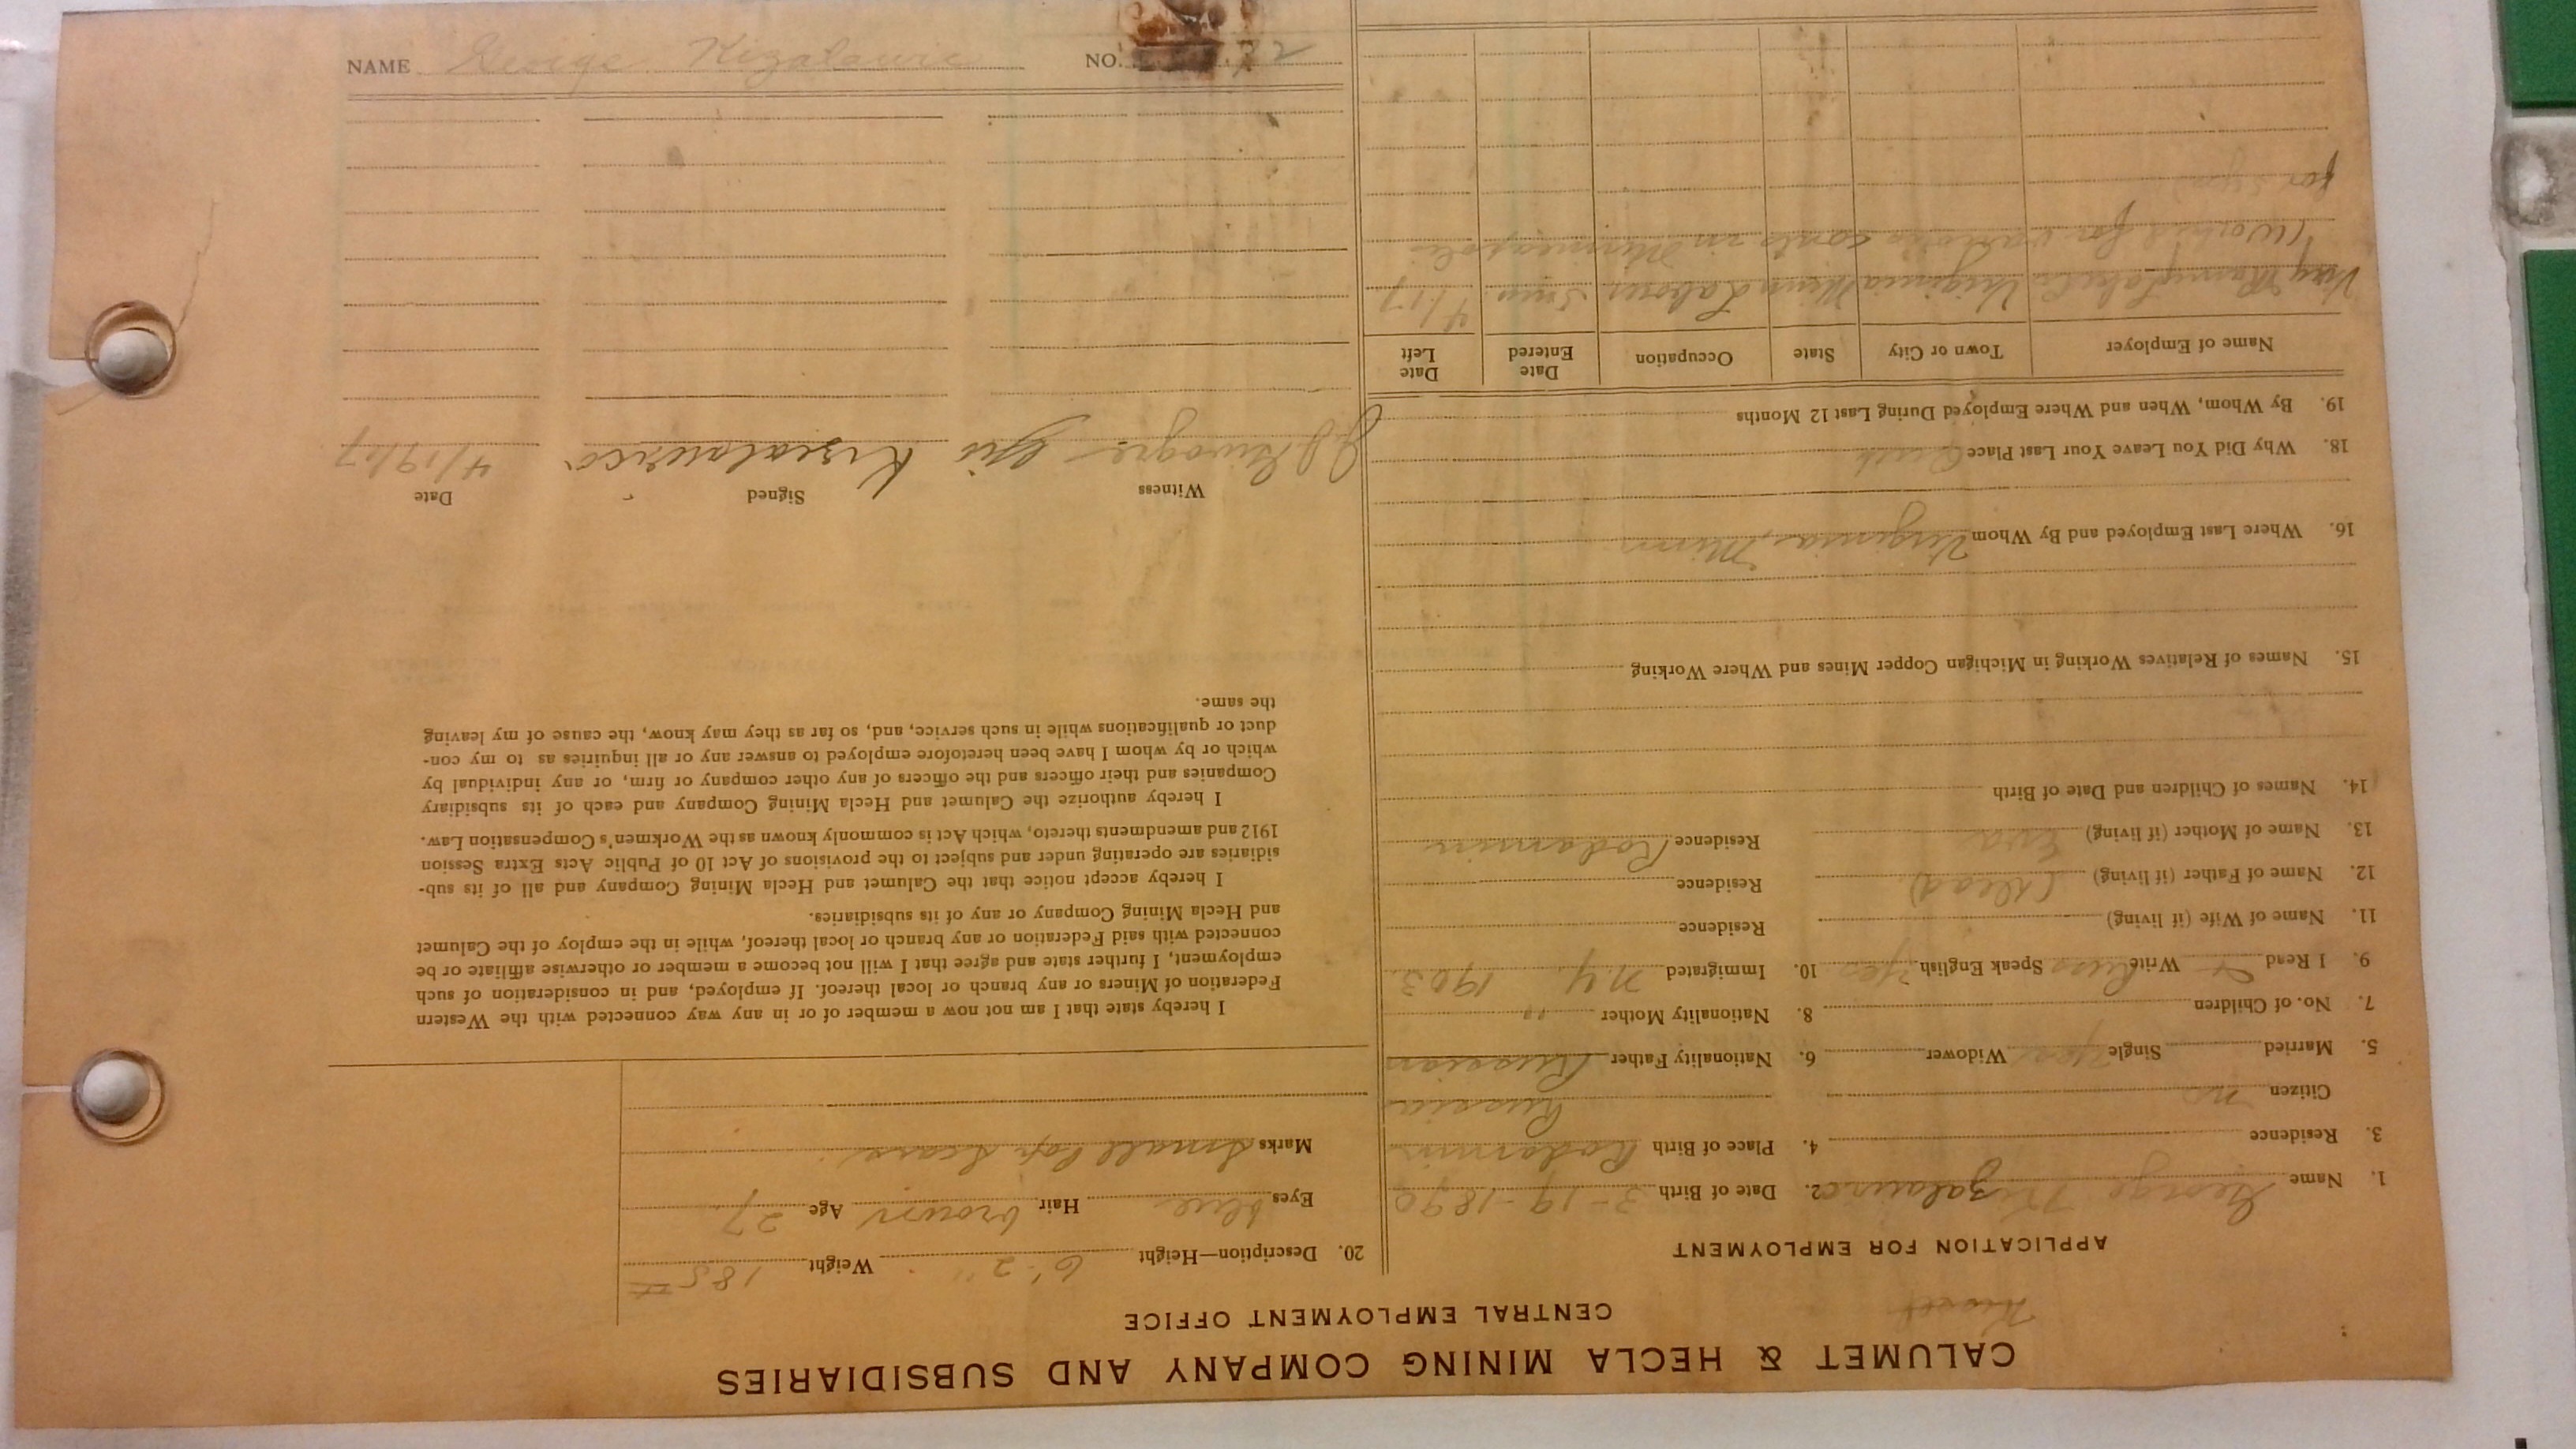 CALUMET & HECLA MINING COMPANY AND SUBSIDIARIES
CENTRAL EMPLOYMENT OFFICE
APPLICATION FOR EMPLOYMENT
1. Name George Kizalawic 2. Date of Birth 3-19-1890
3. Residence 4. Place of Birth
Citizen no Russia
5. Married Single yes Widower 6. Nationality Father Russian
7. No. of Children 8. Nationality Mother "
9. I Read & Write Russ Speak English yes 10. Immigrated N.Y. 1903
11. Name of Wife (if living) Residence
12. Name of Father (if living) (dead) Residence
13. Name of Mother (if living) Eva Residence
14. Names of Children and Date of Birth
15. Names of Relatives Working in Michigan Copper Mines and Where Working
16. Where Last Employed and By Whom Virginia, Minn
18. Why Did You Leave Your Last Place Quit
19. By Whom, When and Where Employed During Last 12 Months
Name of Employer Town or City State Occupation Date Entered Date Left
Virginia Minn Laborer 4/17
(Worked for various conts in Minneapolis
for
20. Description—Height 6'-2" Weight 185#
Eyes blue Hair brown Age 27
Marks Small scars
I hereby state that I am not now a member of or in any way connected with the Western
Federation of Miners or any branch or local thereof. If employed, and in consideration of such
employment, I further state and agree that I will not become a member or otherwise affiliate or be
connected with said Federation or any branch or local thereof, while in the employ of the Calumet
and Hecla Mining Company or any of its subsidiaries.
I hereby accept notice that the Calumet and Hecla Mining Company and all of its sub-
sidiaries are operating under and subject to the provisions of Act 10 of Public Acts Extra Session
1912 and amendments thereto, which Act is commonly known as the Workmen's Compensation Law.
I hereby authorize the Calumet and Hecla Mining Company and each of its subsidiary
Companies and their officers and the officers of any other company or firm, or any individual by
which or by whom I have been heretofore employed to answer any or all inquiries as to my con-
duct or qualifications while in such service, and, so far as they may know, the cause of my leaving
the same.
Witness Signed Date
4/19/17
NAME George Kizalawic NO.